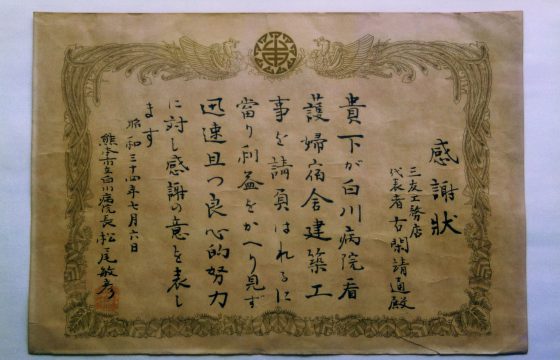 感謝狀
三友工務店
代表者 古閑靖通殿
貴下が白川病院看
護婦宿舎建築工
事を請負はれるに
當り利益をかへり見ず
迅速且つ良心的努力
に対し感謝の意を表し
ます
昭和三十四年七月六日
熊本市立白川病院長 松尾敏彦